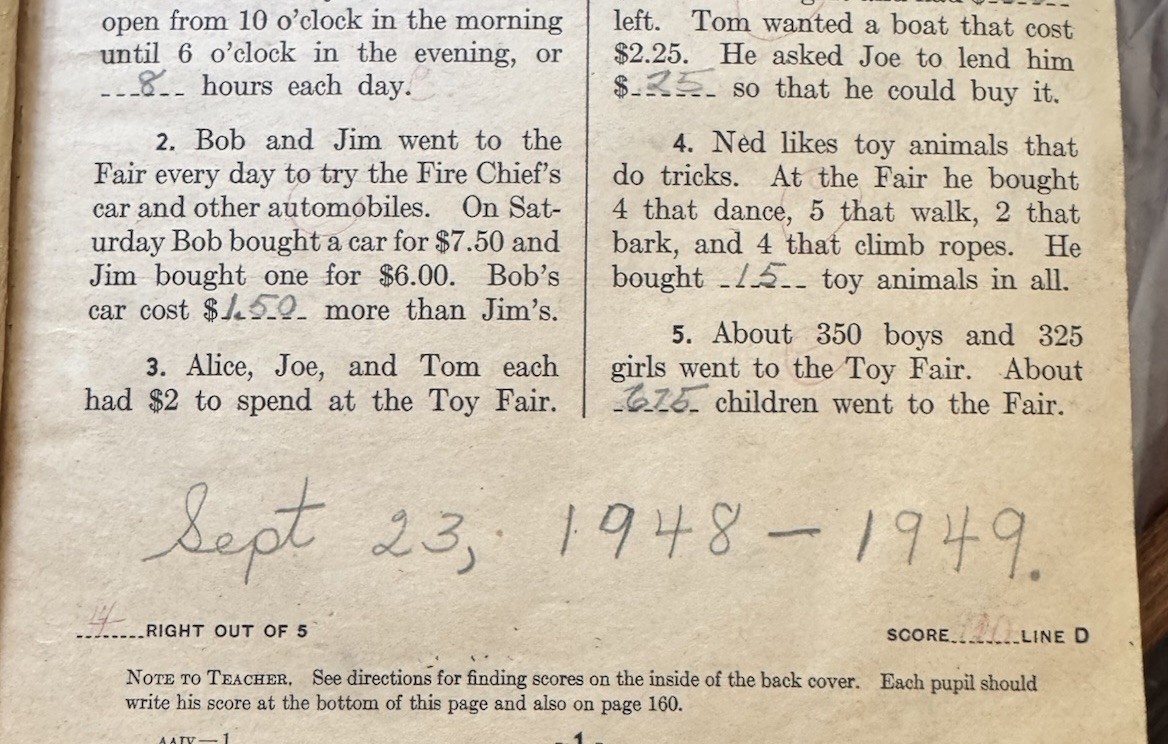 open from 10 o'clock in the morning
until 6 o'clock in the evening, or
8 hours each day.
2. Bob and Jim went to the
Fair every day to try the Fire Chief's
car and other automobiles. On Sat-
urday Bob bought a car for $7.50 and
Jim bought one for $6.00. Bob's
car cost $1.50 more than Jim's.
3. Alice, Joe, and Tom each
had $2 to spend at the Toy Fair.
left. Tom wanted a boat that cost
$2.25. He asked Joe to lend him
$.25 so that he could buy it.
4. Ned likes toy animals that
do tricks. At the Fair he bought
4 that dance, 5 that walk, 2 that
bark, and 4 that climb ropes. He
bought 15 toy animals in all.
5. About 350 boys and 325
girls went to the Toy Fair. About
675 children went to the Fair.
Sept 23, 1948 – 1949.
4 RIGHT OUT OF 5
SCORE LINE D
NOTE TO TEACHER. See directions for finding scores on the inside of the back cover. Each pupil should
write his score at the bottom of this page and also on page 160.
AAIV—1
- 1 -